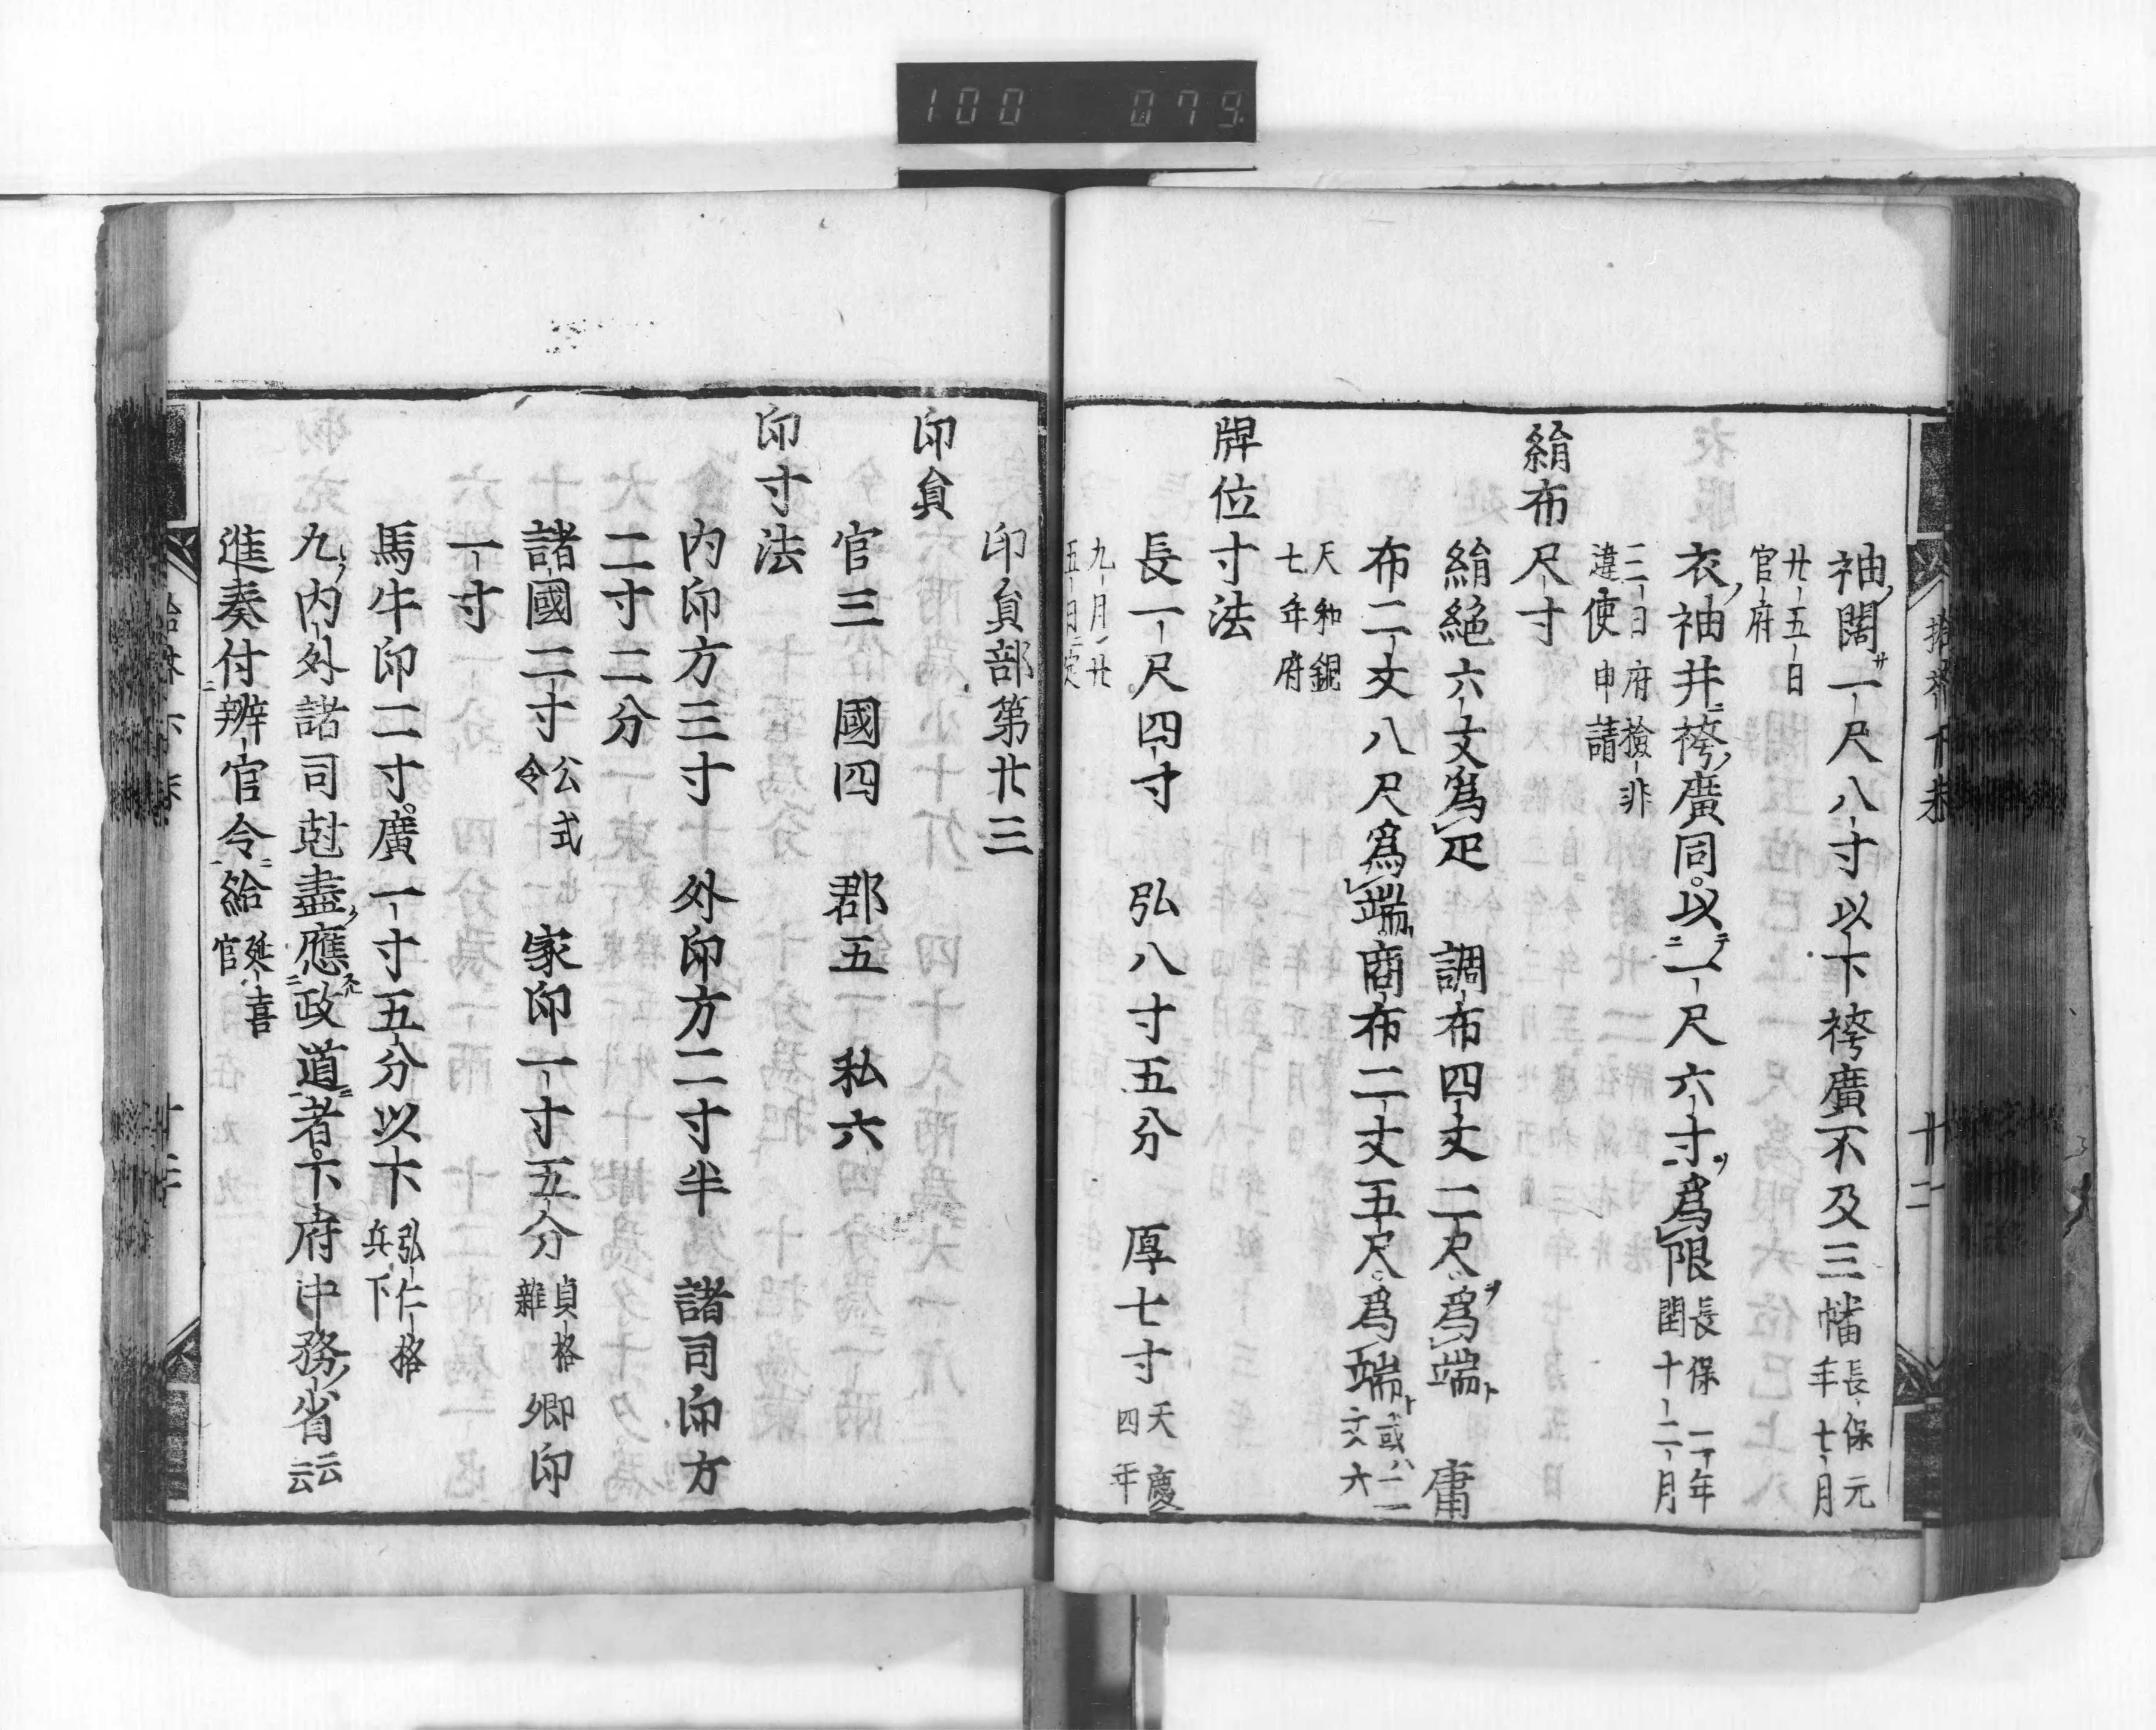 100 079
袖闊一尺八寸以下袴廣不及三幡長保元年七月
廿五日官府
衣袖并袴廣同以一尺六寸爲限長保二年閏十二月
二日府撿非違使申請
絹布尺寸
絹絁六丈爲疋 調布四丈二尺爲端 庸
布二丈八尺爲端商布二丈五尺爲端或二丈六
天和銅七年府
牌位寸法
長一尺四寸 弘八寸五分 厚七寸天慶四年
九月廿五日定
廿二
印貟部第廿三
印貟
官三 國四 郡五 私六
印寸法
内印方三寸 外印方二寸半 諸司印方
二寸二分
諸國二寸公式令 家印一寸五分貞格雜 郷印
一寸
馬牛印二寸廣一寸五分以下弘仁格兵下
九内外諸司尅盡應政道者下府中務省云云
進奏付辨官令給延喜官